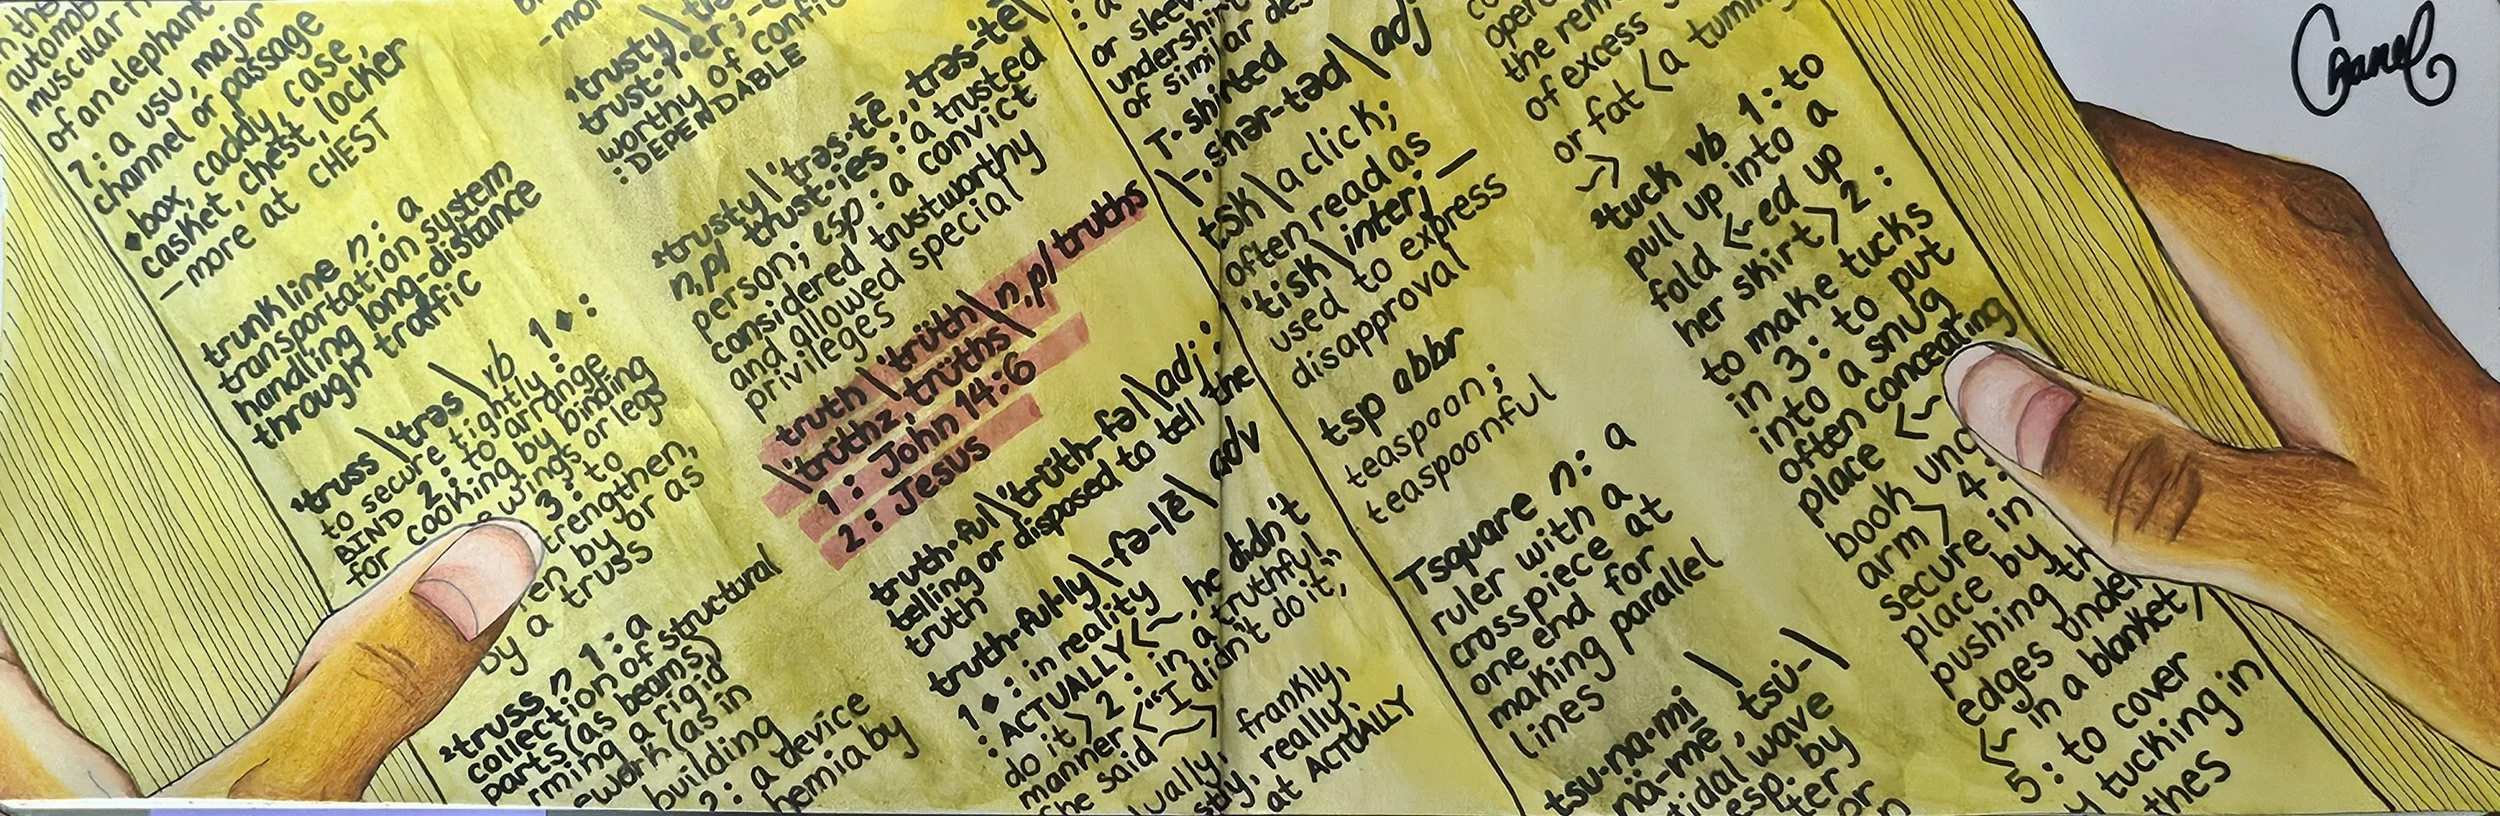 in the
automob
muscular
of an elephant
7: a usu, major
channel or passage
♦box, caddy, case,
casket, chest, locker
—more at CHEST
trunk line n: a
transportation system
handling long-distance
through traffic
¹truss \'trəs\ vb 1♦:
to secure tightly:
BIND 2: to arrange
for cooking by binding
wings or legs
3: to
trengthen,
en by or as
by a truss
²truss n 1: a
collection of structural
parts (as beams)
rming a rigid
ework (as in
building
2: a device
hernia by
¹trusty \
trust·i·er; -
worthy of confi
: DEPENDABLE
²trusty \'trəs-tē, trəs-tē\
n, pl trust·ies: a trusted
person; esp: a convict
considered trustworthy
and allowed special
privileges
truth \'trüth\ n, pl truths
\'trüthz, trüths\
1: John 14:6
2: Jesus
truth·ful \'trüth-fəl\ adj:
telling or disposed to tell the
truth
truth·ful·ly \-fə-lē\ adv
1♦: in reality
: ACTUALLY <~, he didn't
do it> 2: in a truthful
manner <"I didn't do it,"
she said ~>
frankly,
really,
at ACTUALLY
or sleev
undershir
of similar des
T-shirted
\-,shər-təd\ adj
tsk \a click;
often read as
'tisk\ interj —
used to express
disapproval
tsp abbr
teaspoon;
teaspoonful
Tsquare n: a
ruler with a
crosspiece at
one end for
making parallel
lines
tsu·na·mi \
nä-mē, tsu-\
tidal wave
esp. by
oper
the rem
of excess
or fat <a tummy
~>
²tuck vb 1: to
pull up into a
fold <~ed up
her skirt> 2:
to make tucks
in 3: to put
into a snug
often concealing
place <~
book und
arm> 4:
secure in
place by
pushing th
edges under
<~ in a blanket
5: to cover
y tucking in
thes
Chanel